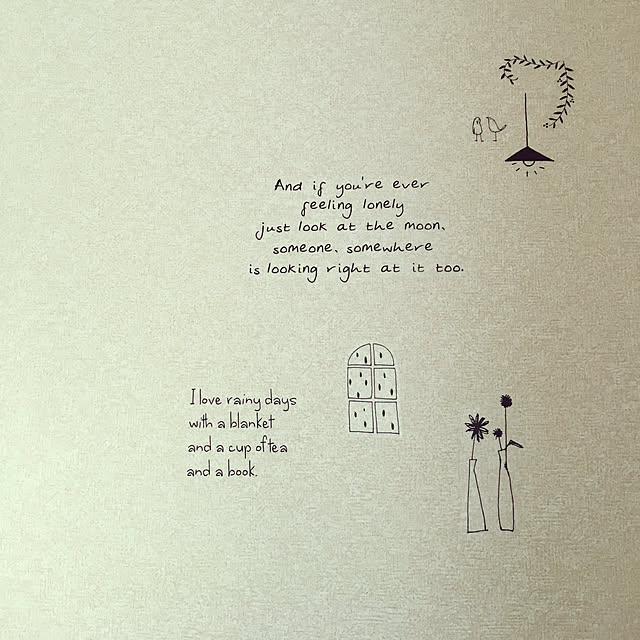 And if you're ever
feeling lonely
just look at the moon.
someone, somewhere
is looking right at it too.
I love rainy days
with a blanket
and a cup of tea
and a book.